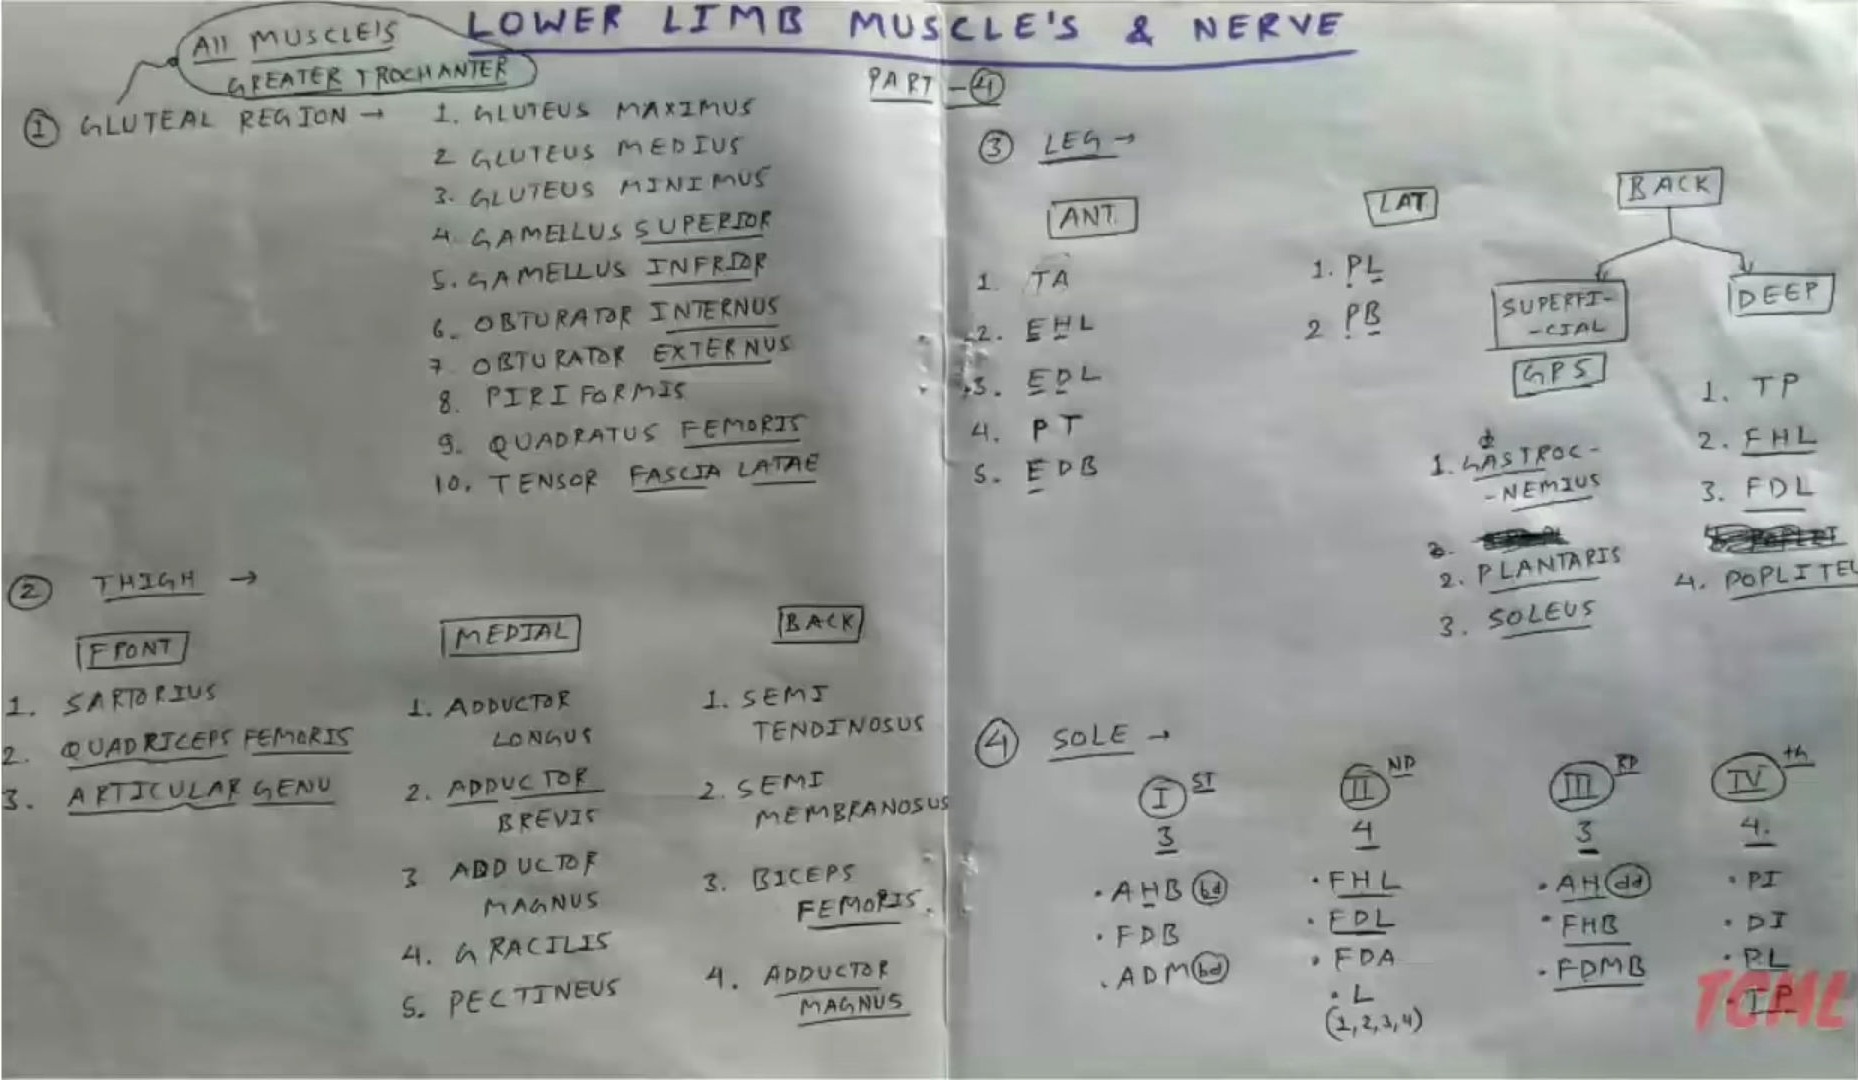 LOWER LIMB MUSCLE'S & NERVE
All MUSCLE'S
GREATER TROCHANTER
PART - 4
① GLUTEAL REGION →
1. GLUTEUS MAXIMUS
2 GLUTEUS MEDIUS
3. GLUTEUS MINIMUS
4. GAMELLUS SUPERIOR
5. GAMELLUS INFRIOR
6. OBTURATOR INTERNUS
7. OBTURATOR EXTERNUS
8. PIRIFORMIS
9. QUADRATUS FEMORIS
10. TENSOR FASCIA LATAE
② THIGH →
FRONT
1. SARTORIUS
2. QUADRICEPS FEMORIS
3. ARTICULAR GENU
MEDIAL
1. ADDUCTOR
LONGUS
2. ADDUCTOR
BREVIS
3 ADDUCTOR
MAGNUS
4. GRACILIS
5. PECTINEUS
BACK
1. SEMI
TENDINOSUS
2. SEMI
MEMBRANOSUS
3. BICEPS
FEMORIS.
4. ADDUCTOR
MAGNUS
③ LEG →
ANT.
1. TA
2. EHL
3. EDL
4. PT
5. EDB
LAT.
1. PL
2 PB
BACK
SUPERFI-
-CIAL
GPS
1. GASTROC-
-NEMIUS
2.
2. PLANTARIS
3. SOLEUS
DEEP
1. TP
2. FHL
3. FDL
4. POPLITEU
④ SOLE →
I ST
3
• AHB (bd)
• FDB
• ADM (bd)
II ND
4
• FHL
• FDL
• FDA
• L
(1,2,3,4)
III RD
3
• AH (dd)
• FHB
• FDMB
IV th
4.
• PI
• DI
• PL
• TP
TCML